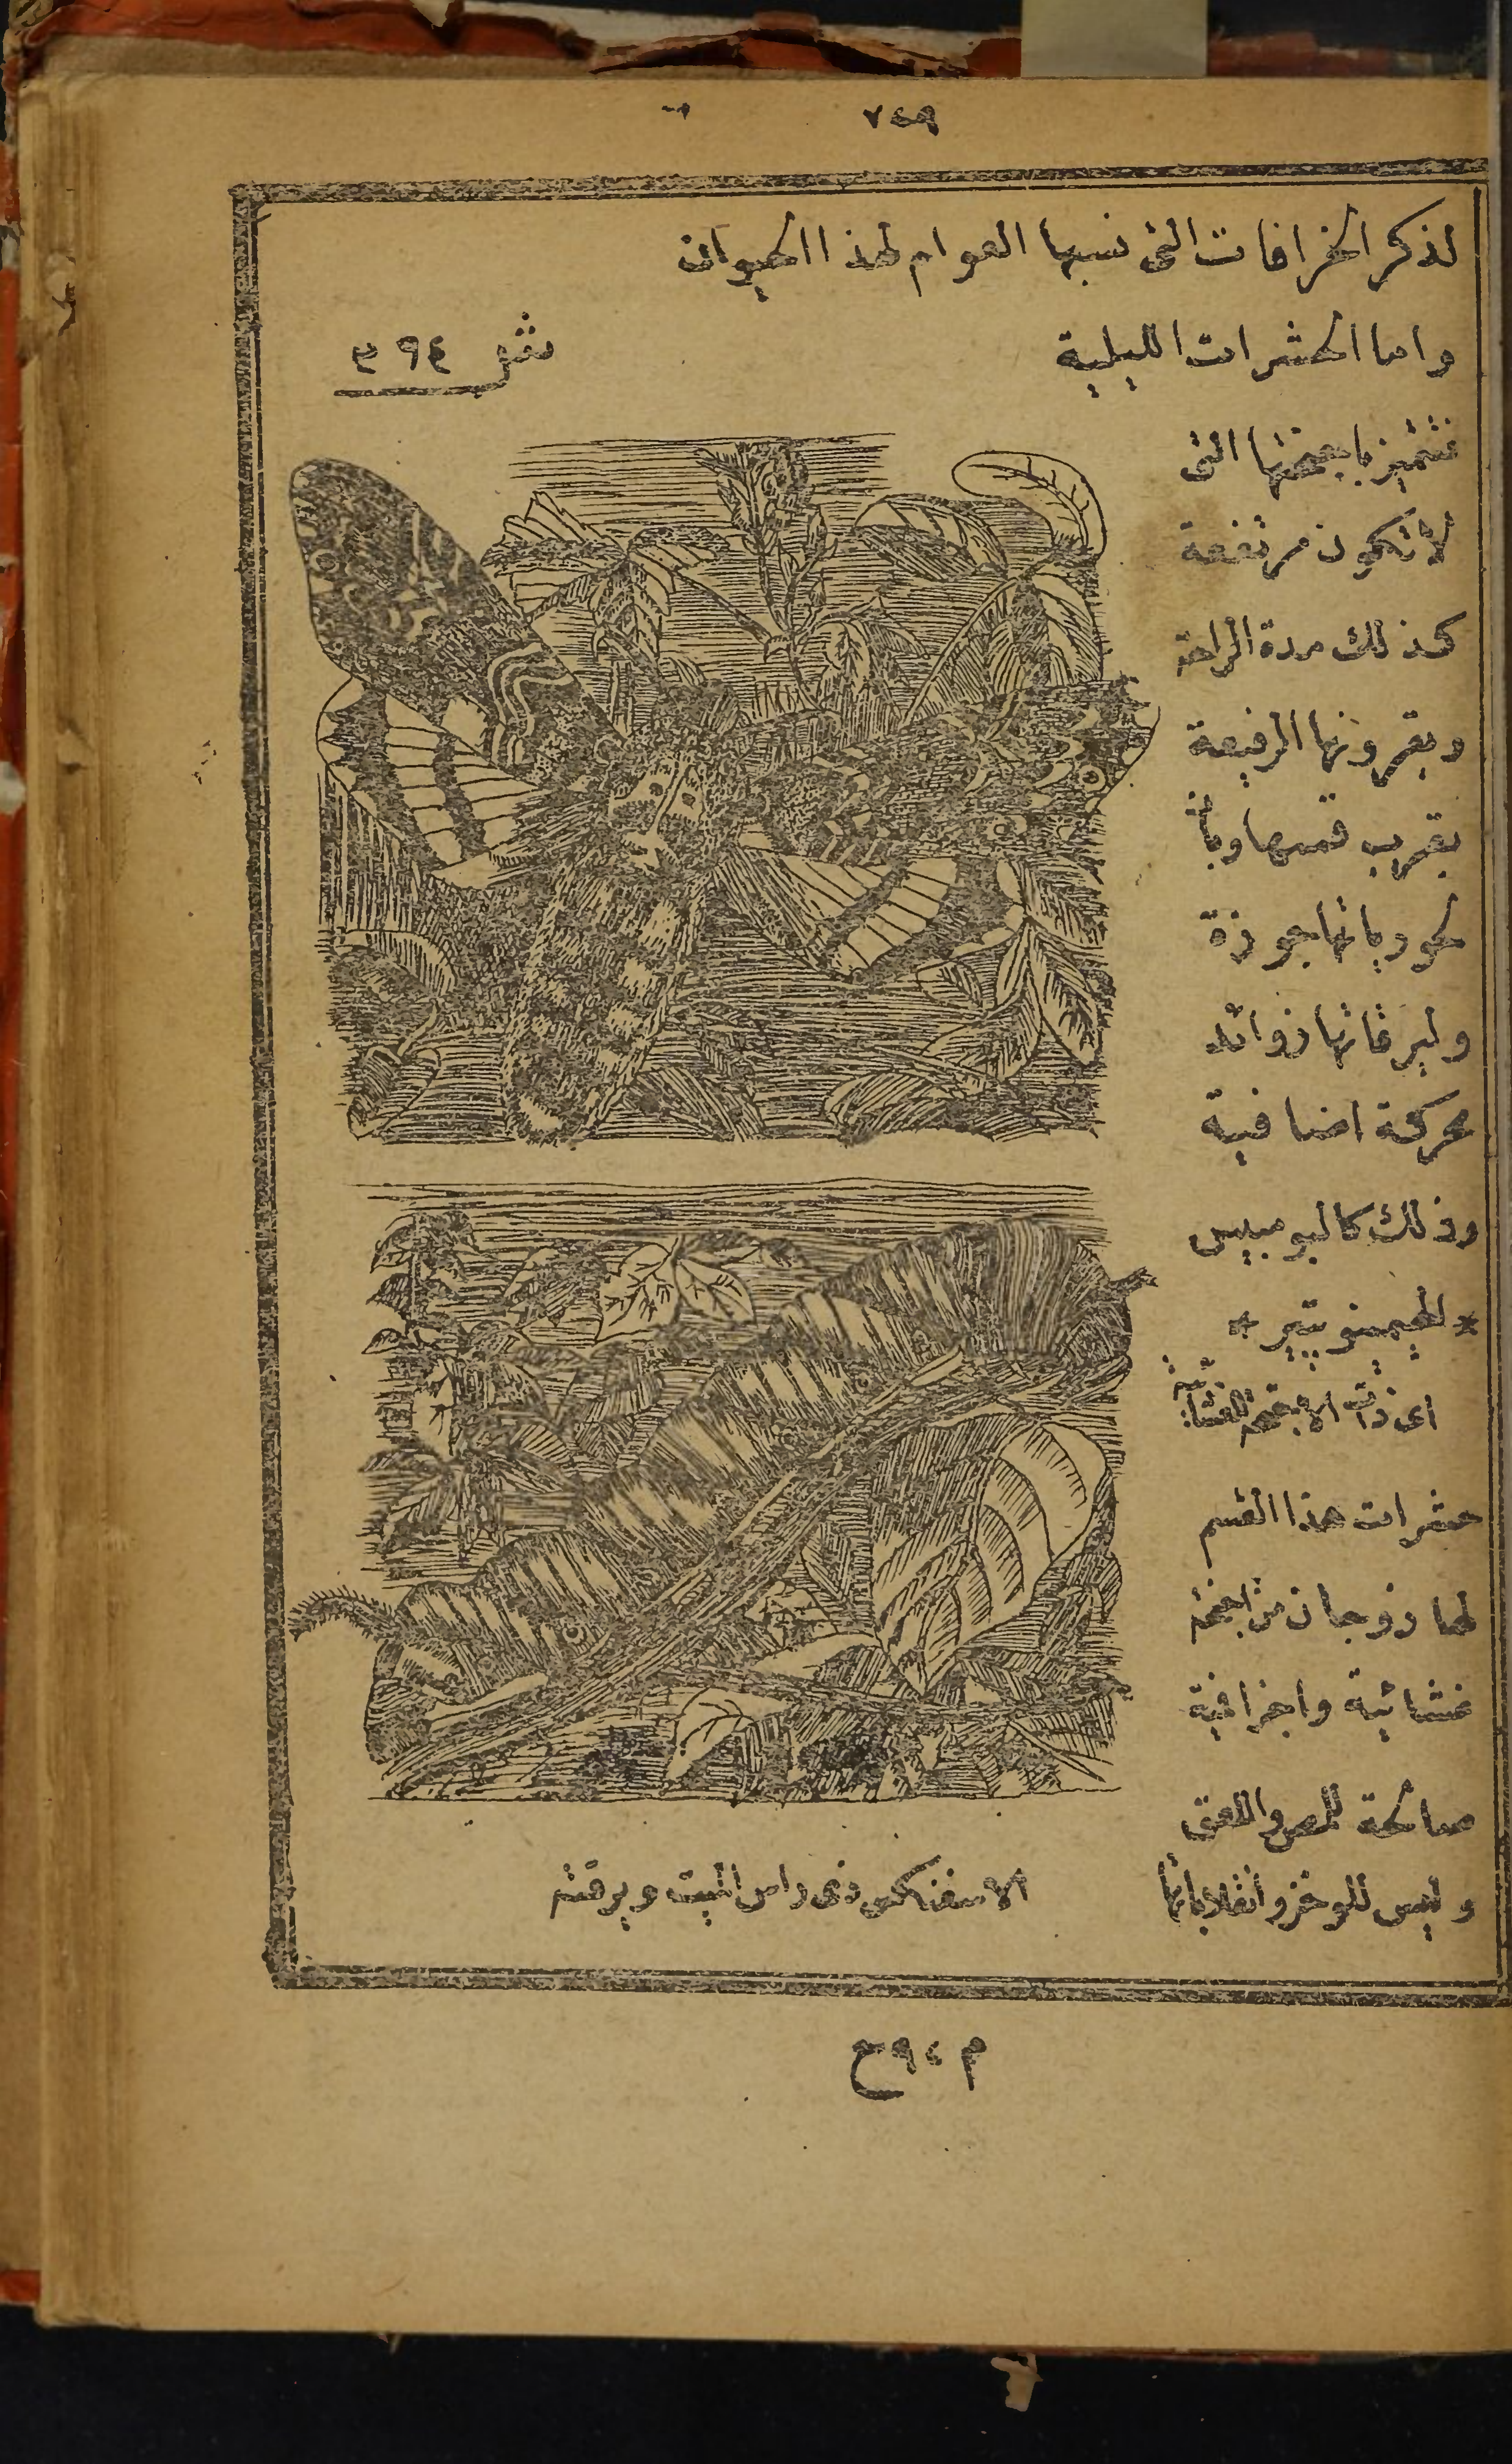 ٧٤٩
لذكر الخرافات التى نسبها العوام لهذا الحيوان
واما الحشرات الليلية
ش ٣٩٤
فتتميز باجنحتها التى
لا تكون مرتفعة
كذلك مدة الراحة
وبقرونها الرفيعة
بقرب قمتها
جوزة
وليرقاتها زوائد
محركة اضافية
وذلك كالبومبيس
* لهيمينوپتير *
اى ذات الاجنحة الغشائية
حشرات هذا القسم
لها زوجان من اجنحة
غشائية واجزا فية
صالحة للمص واللعق
وليس للوخز وانقلاباتها
الاسفنكس ذى راس الميت ويرقته
م ٩٤ ح